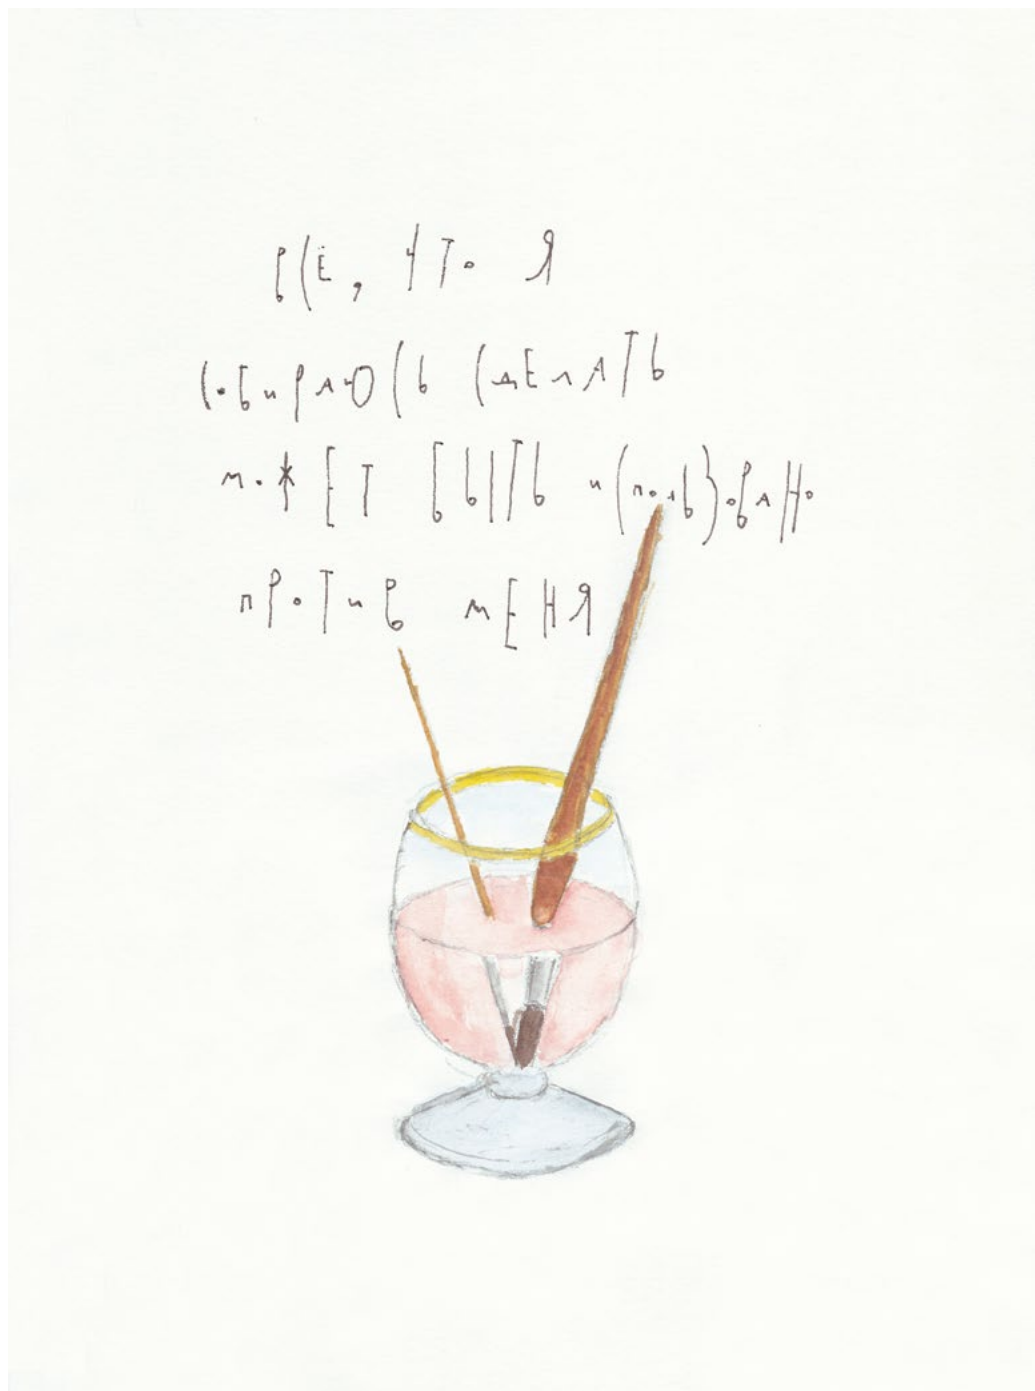 ВСЁ, ЧТО Я
СОБИРАЮСЬ СДЕЛАТЬ
МОЖЕТ БЫТЬ ИСПОЛЬЗОВАНО
ПРОТИВ МЕНЯ